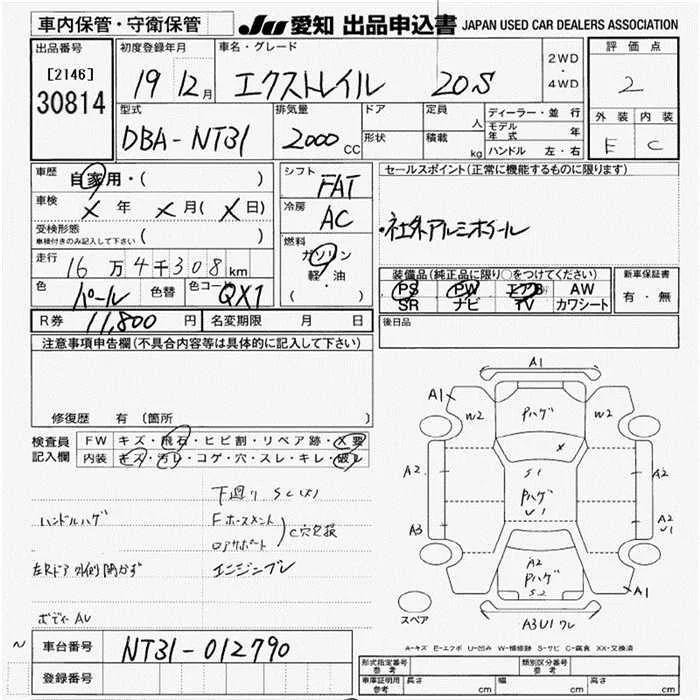 車内保管・守衛保管
JU 愛知 出品申込書 JAPAN USED CAR DEALERS ASSOCIATION
出品番号
[2146]
30814
初度登録年月
19 12月
車名・グレード
エクストレイル 20S
2WD
・
4WD
評価点
2
外装 内装
E C
型式
DBA-NT31
排気量
2000 CC
ドア
形状
定員 人
積載 kg
ディーラー・並行
モデル年式 年
ハンドル 左・右
車歴
自家用・( )
車検
X 年 X 月( X 日)
受検形態
車検付きのみ記入して下さい ( )
走行
16万4千308km
色
パール
色替
色コード
QX1
シフト
FAT
冷房
AC
燃料
ガソリン
軽・油
( )
セールスポイント(正常に機能するものに限ります)
・社外アルミホイール
装備品(純正品に限り○をつけてください)
PS PW エアB AW
SR ナビ TV カワシート
新車保証書
有・無
R券 11,800円
名変期限 月 日
後日品
注意事項申告欄(不具合内容等は具体的に記入して下さい)
修復歴 有(箇所
検査員
記入欄
FW キズ・飛石・ヒビ割・リペア跡・X要
内装 キズ・汚レ・コゲ・穴・スレ・キレ・破レ
下廻り SC(大)
ハンドルハゲ
Fホースメント
ロアサポート
C穴欠損
左Rドア外側開かず
エンジンブレ
ボディAU
A1
A1
W2
Pハゲ
W2
X
A2
S1
Pハゲ
U1
A2
A3
A2
U1
A2
Pハゲ
S2
A1
スペア
A3U1ワレ
A-キズ E-エクボ U-凹み W-補修跡 S-サビ C-腐食 XX-交換済
車台番号
NT31-012790
登録番号
形式指定番号
参考
類別区分番号
参考
車庫証明用
参考
長さ cm
幅 cm
高さ cm